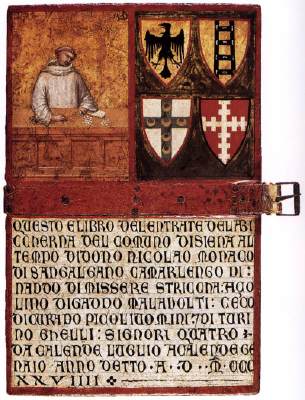 QUESTO E LIBRO DELENTRATE DELABI
CCHERNA DEL COMUNO DISIENA AL
TEMPO DIDONO NICOLAO MONACO
DISANGALGANO CAMARLENGO DI :
NADDO DI MISSERE STRICCHA : AGO
LINO DIGADDO MALABOLTI : CECCO
DICURADO PICOLIUOMINI 7 DI TURI
NO GNELLI : SIGNORI QUATRO :
DA CALENDE LUGLIO ACALENDEGE
NAIO ANNO DETTO · A · D · MCCC
XXVIIII